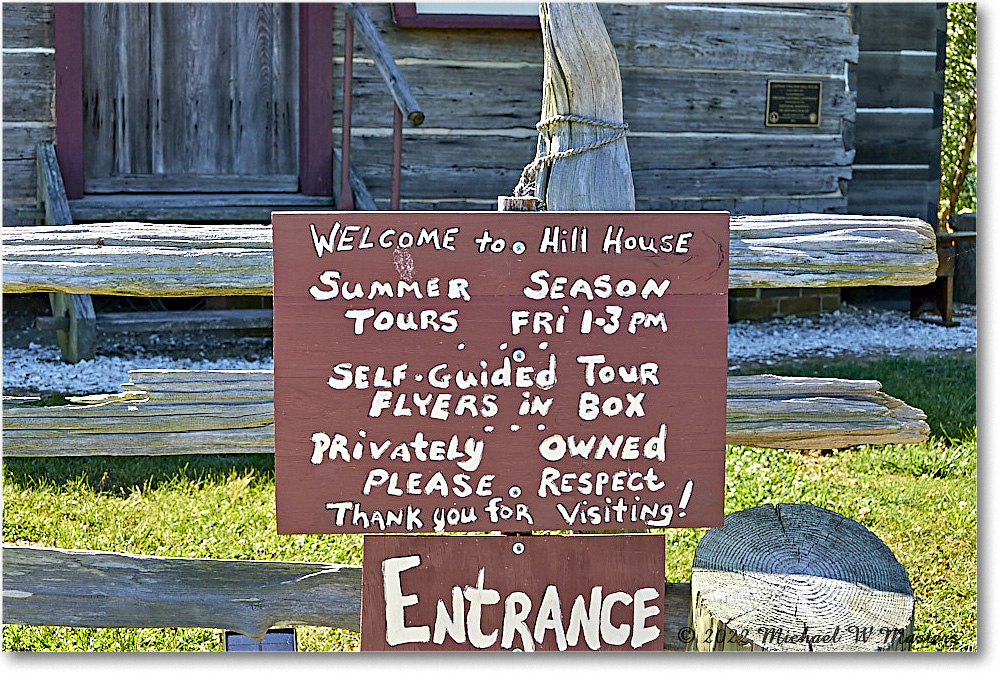 Welcome to Hill House
Summer Season
Tours Fri 1-3 pm
Self-Guided Tour
Flyers in Box
Privately Owned
Please Respect
Thank you for Visiting!
Entrance
© 2022 Michael W Masters